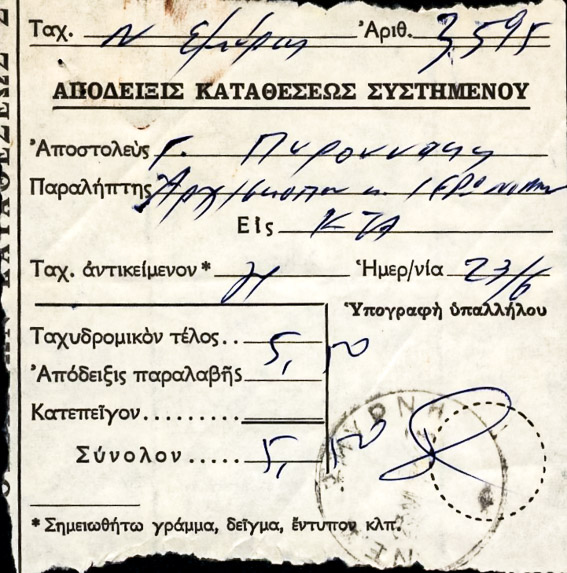 Ταχ. Ν Σμύρνης Ἀριθ. 3595
ἈΠΟΔΕΙΞΙΣ ΚΑΤΑΘΕΣΕΩΣ ΣΥΣΤΗΜΕΝΟΥ
Ἀποστολεὺς Γ.
Παραλήπτης Ἀρχιεπίσκοπον κ. ΙΕΡΩΝΥΜΟΝ
Εἰς
Ταχ. ἀντικείμενον * Ἡμερ/νία 23/6
Ὑπογραφὴ ὑπαλλήλου
Ταχυδρομικὸν τέλος .. 5,50
Ἀπόδειξις παραλαβῆς
Κατεπεῖγον ........
Σύνολον ..... 5,50
* Σημειωθήτω γράμμα, δεῖγμα, ἔντυπον κλπ.